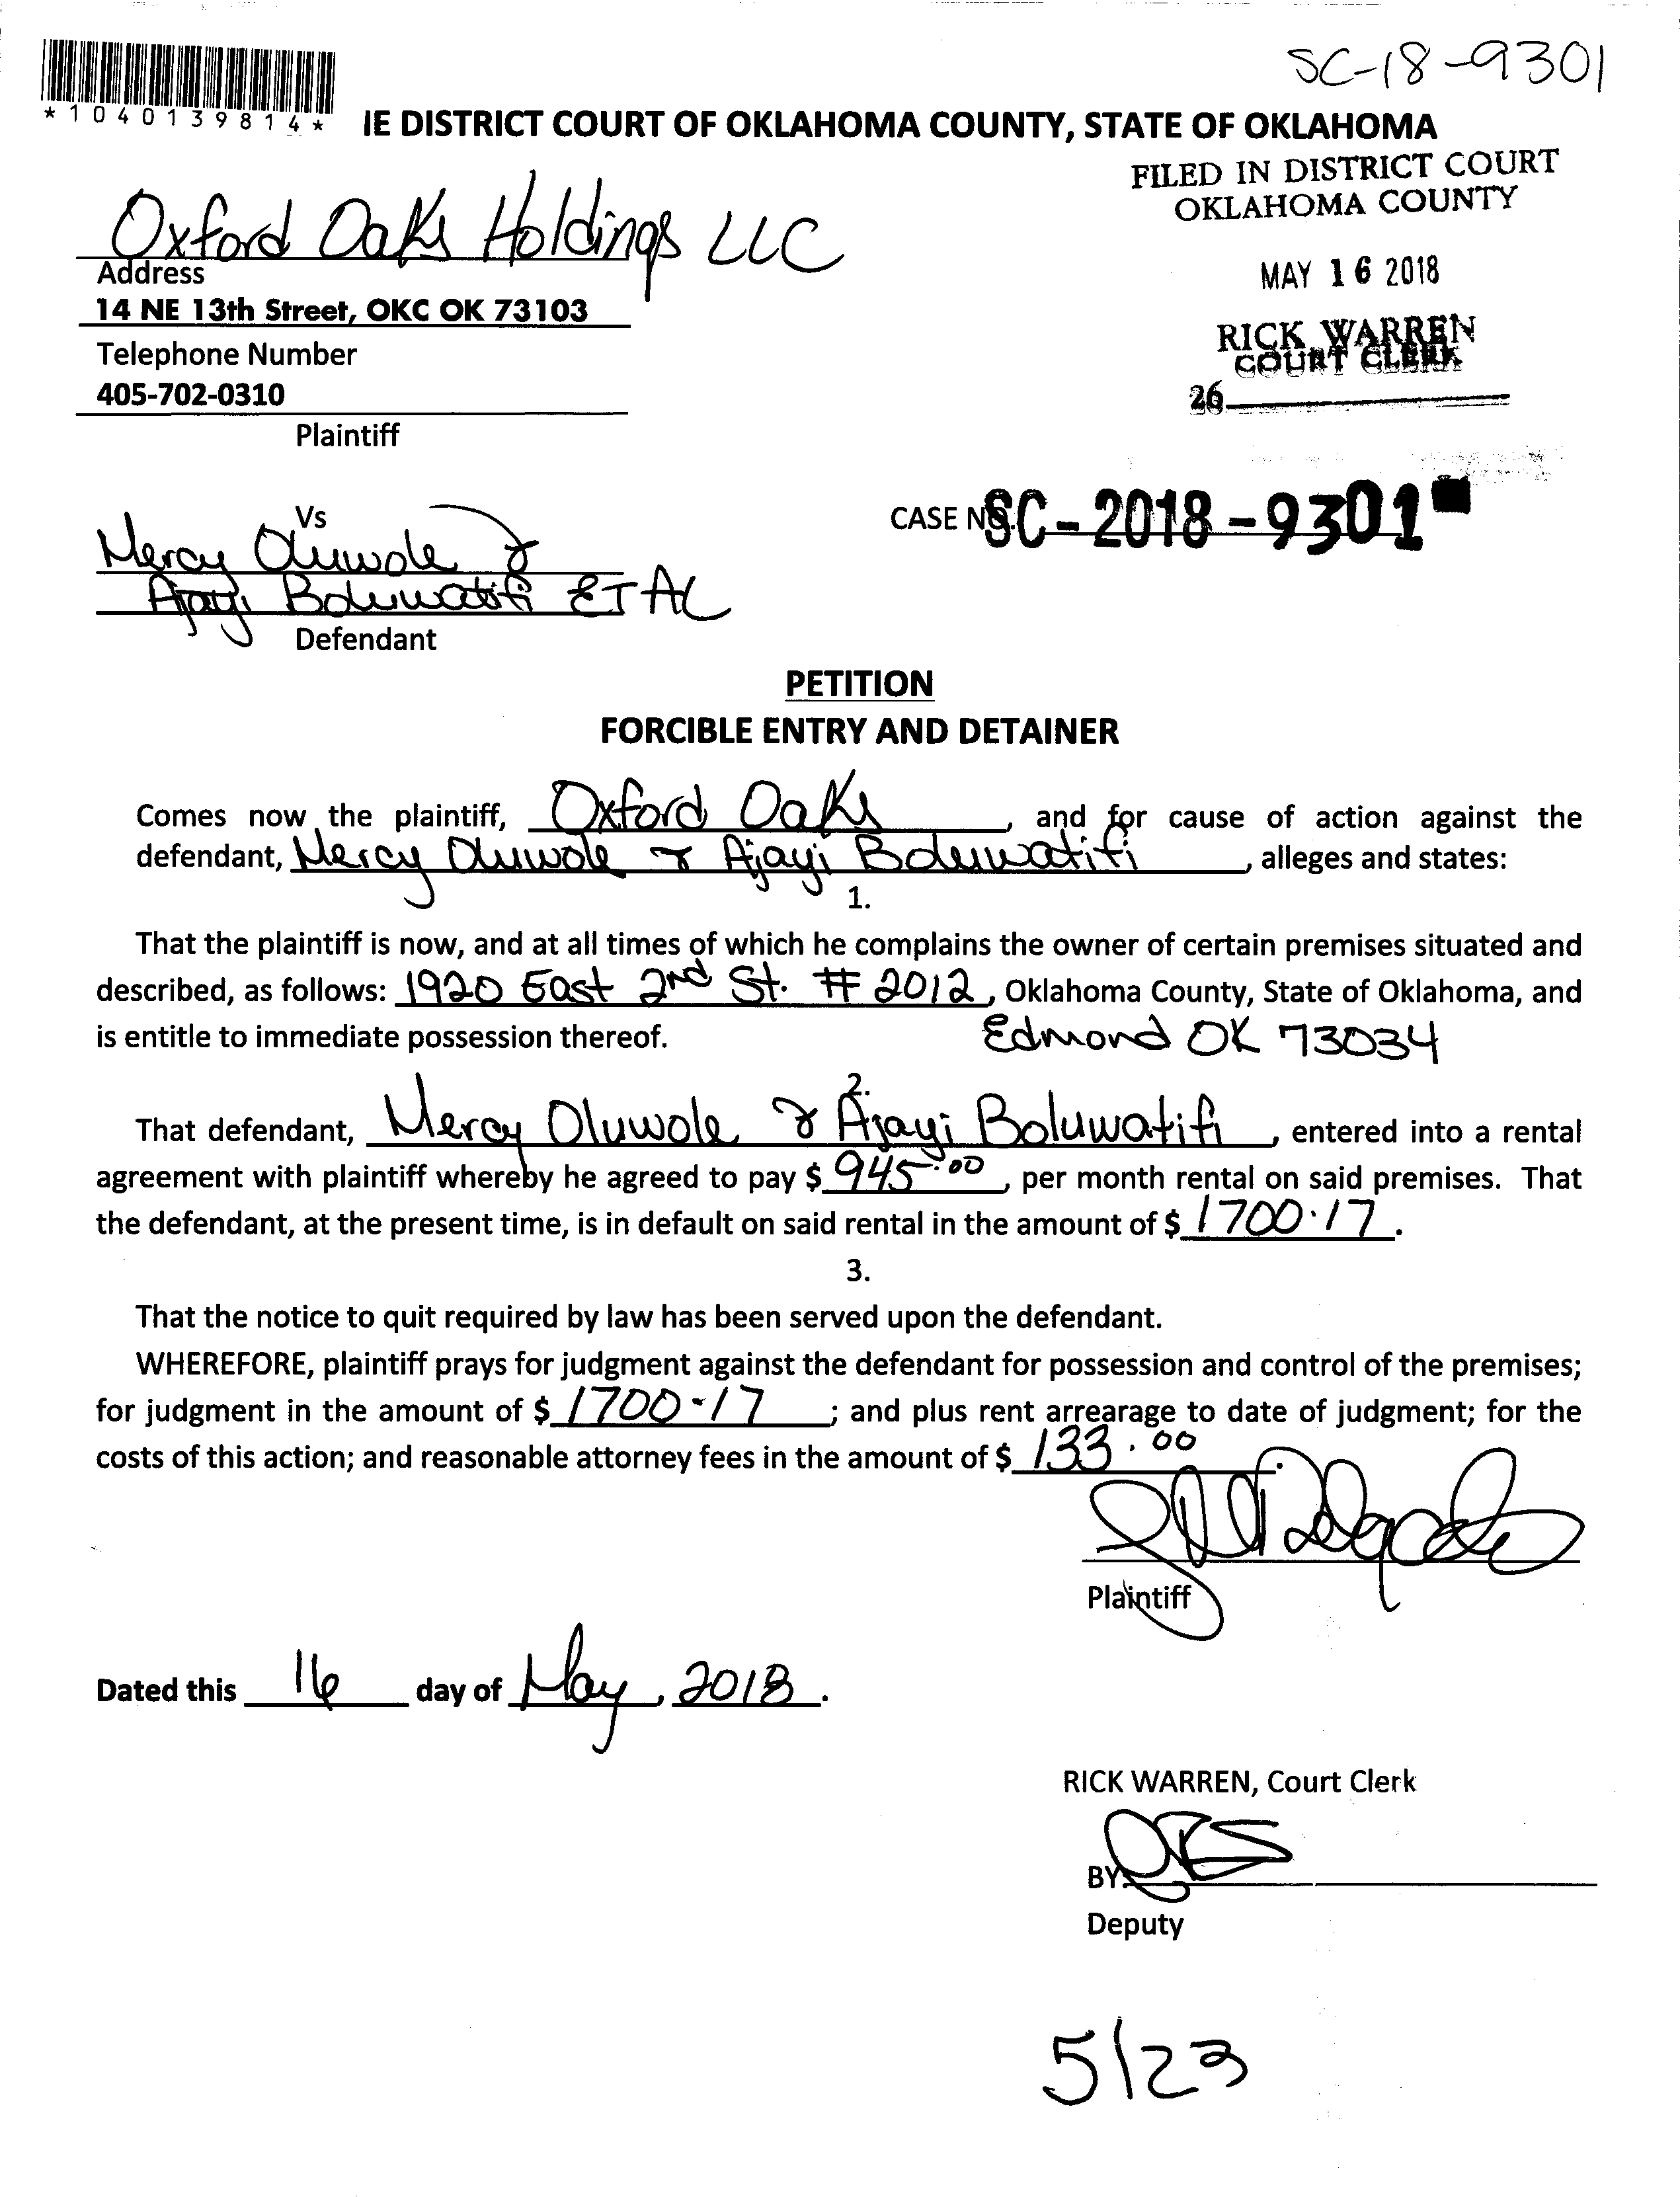 SC-18-9301
*1040139814*
IE DISTRICT COURT OF OKLAHOMA COUNTY, STATE OF OKLAHOMA
FILED IN DISTRICT COURT
OKLAHOMA COUNTY
Oxford Oaks Holdings LLC
Address
MAY 16 2018
14 NE 13th Street, OKC OK 73103
RICK WARREN
COURT CLERK
Telephone Number
405-702-0310
26
Plaintiff
Vs
CASE NO. SC-2018-9301
Mercy Oluwole &
Ajayi Boluwatifi ET AL
Defendant
PETITION
FORCIBLE ENTRY AND DETAINER
Comes now the plaintiff, Oxford Oaks, and for cause of action against the
defendant, Mercy Oluwole & Ajayi Boluwatifi, alleges and states:
1.
That the plaintiff is now, and at all times of which he complains the owner of certain premises situated and
described, as follows: 1920 East 2nd St. # 2012, Oklahoma County, State of Oklahoma, and
is entitle to immediate possession thereof. Edmond OK 73034
2.
That defendant, Mercy Oluwole & Ajayi Boluwatifi, entered into a rental
agreement with plaintiff whereby he agreed to pay $ 945.00, per month rental on said premises. That
the defendant, at the present time, is in default on said rental in the amount of $ 1700.17.
3.
That the notice to quit required by law has been served upon the defendant.
WHEREFORE, plaintiff prays for judgment against the defendant for possession and control of the premises;
for judgment in the amount of $ 1700-17; and plus rent arrearage to date of judgment; for the
costs of this action; and reasonable attorney fees in the amount of $ 133.00.
Plaintiff
Dated this 16 day of May, 2018.
RICK WARREN, Court Clerk
BY:
Deputy
5/23